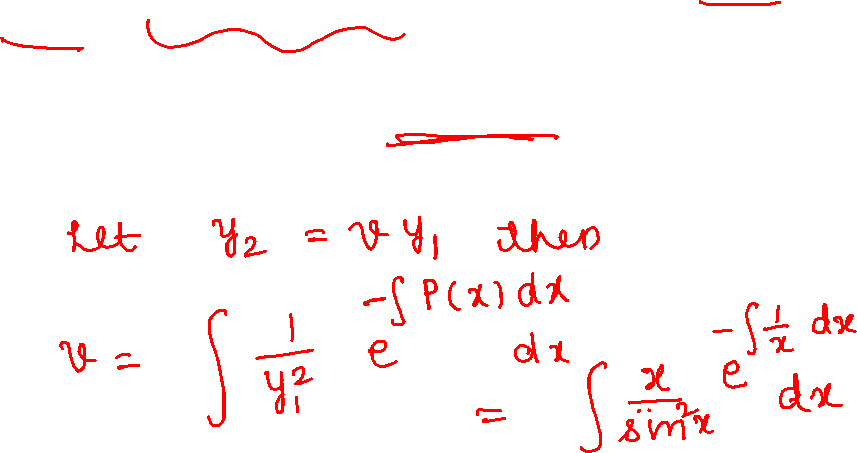 Let y₂ = v y₁ then
v = ∫ 1/y₁² e^(-∫ P(x) dx) dx = ∫ x/sin²x e^(-∫ 1/x dx) dx